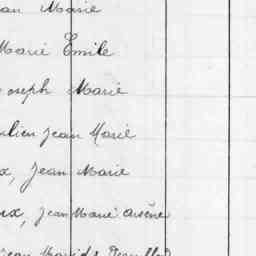 an Marie
Marie Emile
oseph Marie
lien Jean Marie
x, Jean Marie
ux, Jean Marie Arsène
Jean Marie